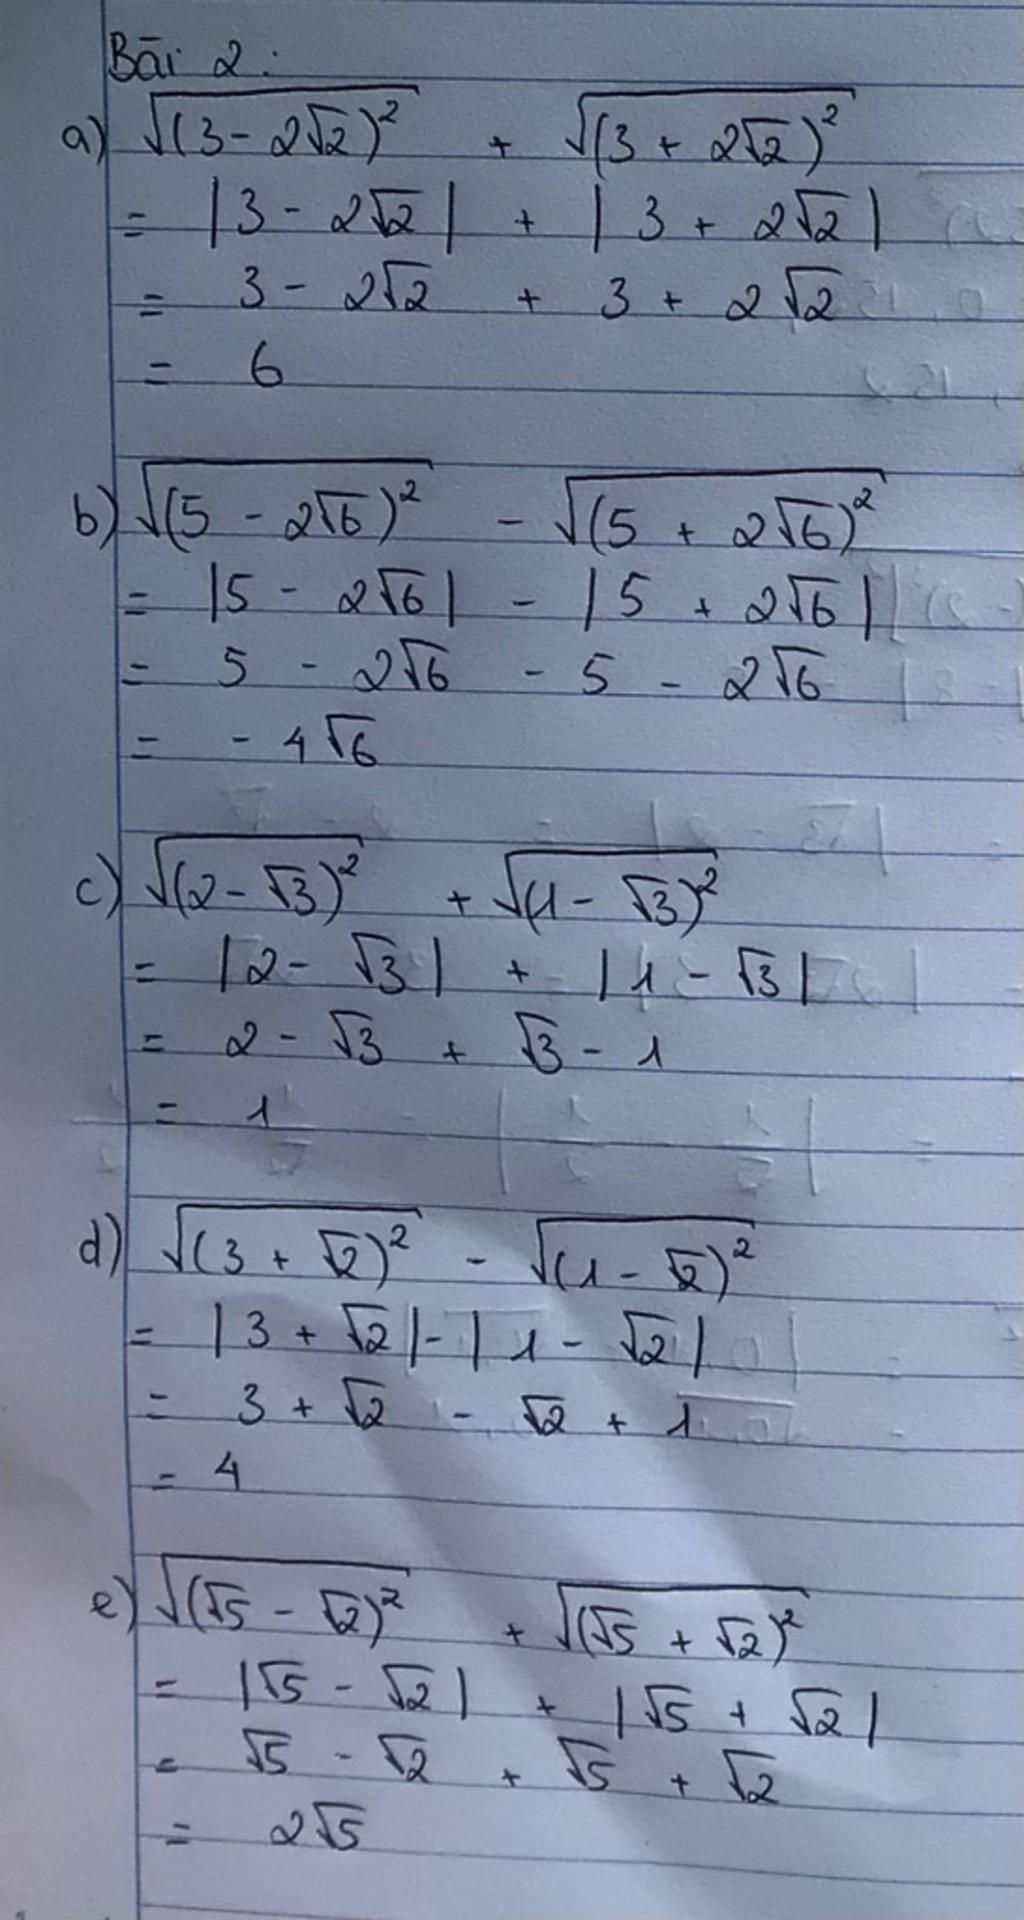 Bài 2:
a) √(3 - 2√2)² + √(3 + 2√2)²
= |3 - 2√2| + |3 + 2√2|
= 3 - 2√2 + 3 + 2√2
= 6
b) √(5 - 2√6)² - √(5 + 2√6)²
= |5 - 2√6| - |5 + 2√6|
= 5 - 2√6 - 5 - 2√6
= - 4√6
c) √(2 - √3)² + √(1 - √3)²
= |2 - √3| + |1 - √3|
= 2 - √3 + √3 - 1
= 1
d) √(3 + √2)² - √(1 - √2)²
= |3 + √2| - |1 - √2|
= 3 + √2 - √2 + 1
= 4
e) √(√5 - √2)² + √(√5 + √2)²
= |√5 - √2| + |√5 + √2|
= √5 - √2 + √5 + √2
= 2√5